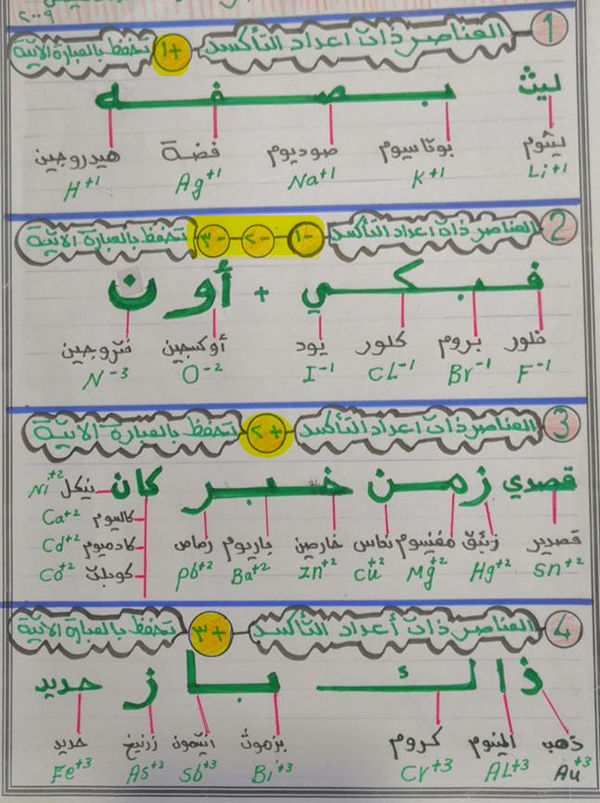 ٢٠٠٩
1 العناصر ذات اعداد التأكسد +1 تحفظ بالعبارة الآتية
ليث بصفه
ليثيوم بوتاسيوم صوديوم فضة هيدروجين
Li+1 K+1 Na+1 Ag+1 H+1
2 العناصر ذات اعداد التأكسد -1 -٢ -٣ تحفظ بالعبارة الآتية
فبكي + أون
فلور بروم كلور يود أوكسجين نتروجين
F-1 Br-1 CL-1 I-1 O-2 N-3
3 العناصر ذات اعداد التأكسد +٢ تحفظ بالعبارة الآتية
قصدي زمن خبر كان
نيكل Ni+2
كالسيوم Ca+2
كادميوم Cd+2
كوبلت Co+2
قصدير زئبق مغنيسيوم نحاس خارصين باريوم رصاص
Sn+2 Hg+2 Mg+2 Cu+2 Zn+2 Ba+2 Pb+2
4 العناصر ذات أعداد التأكسد +٣ تحفظ بالعبارة الآتية
ذالك باز حديد
ذهب المنيوم كروم بزموث انتيمون زرنيخ حديد
Au+3 AL+3 Cr+3 Bi+3 Sb+3 As+3 Fe+3